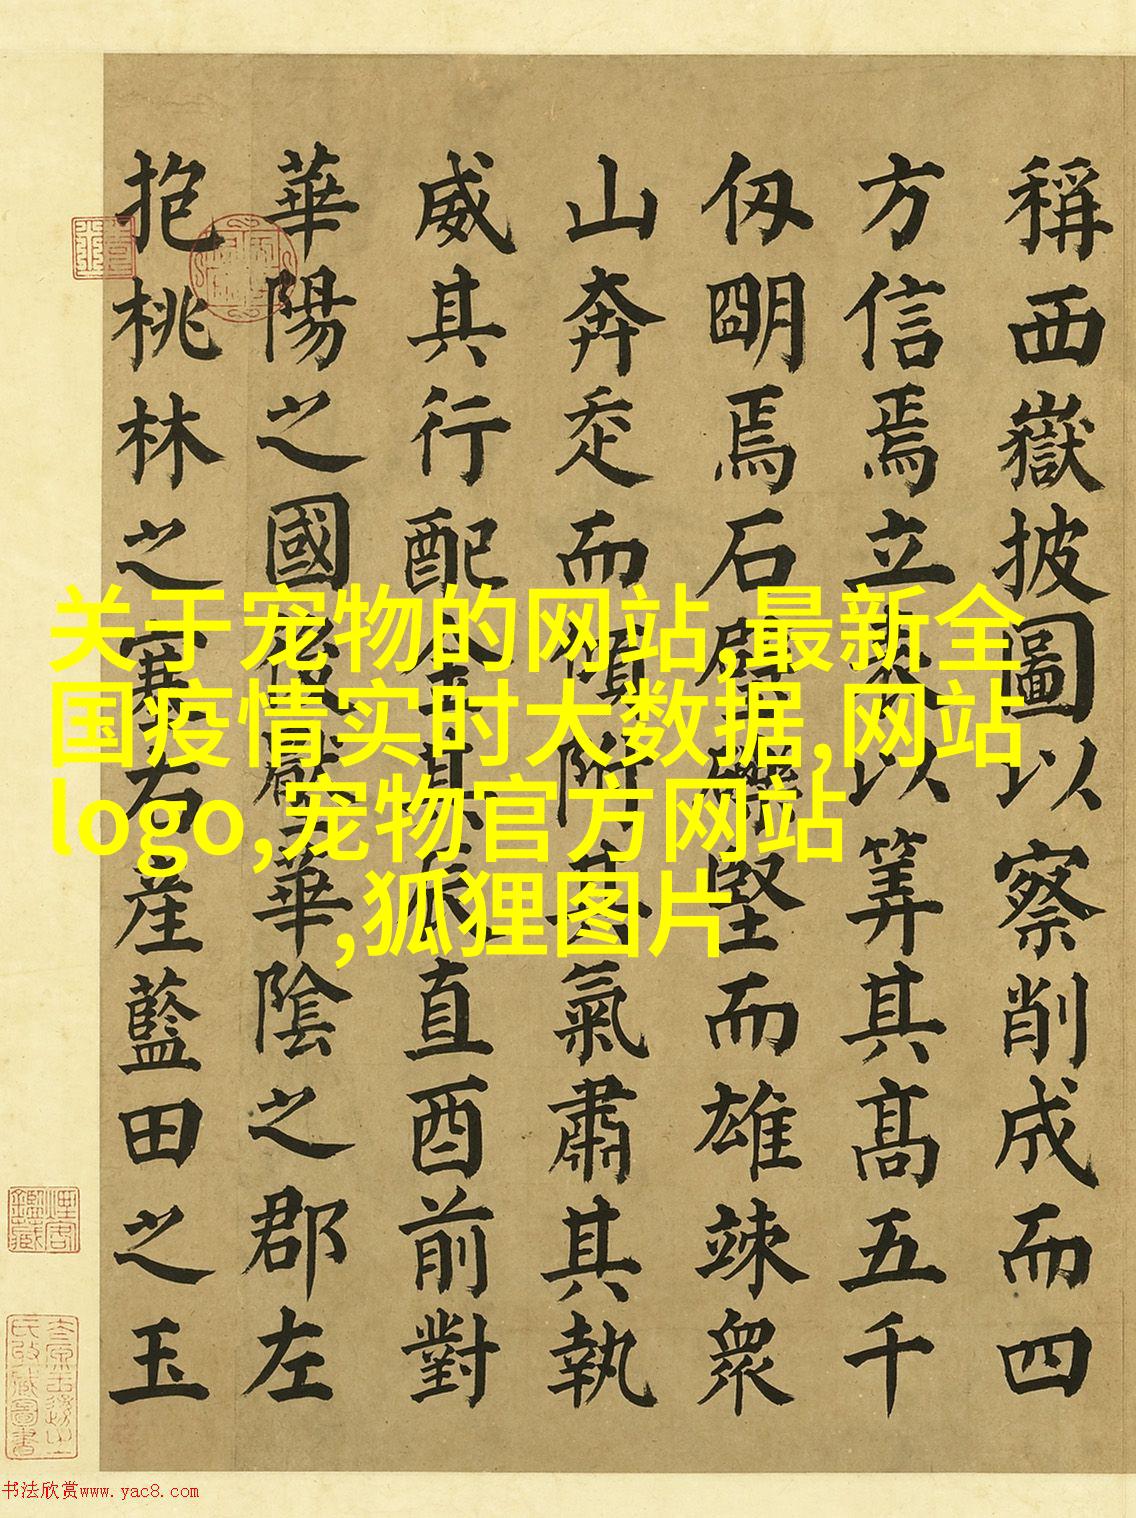 稱西嶽披圖以察削成而四
方信焉立表以筭其髙五千
仭朙焉石壁堅而雄竦衆
山奔走而傾附其氣肅其執
威其行配金其辰直酉前對
華陽之國華陰之郡左
抱桃林之塞右産藍田之玉
关于宠物的网站,最新全
国疫情实时大数据,网站
logo,宠物官方网站
,狐狸图片
书法欣赏www.yac8.com